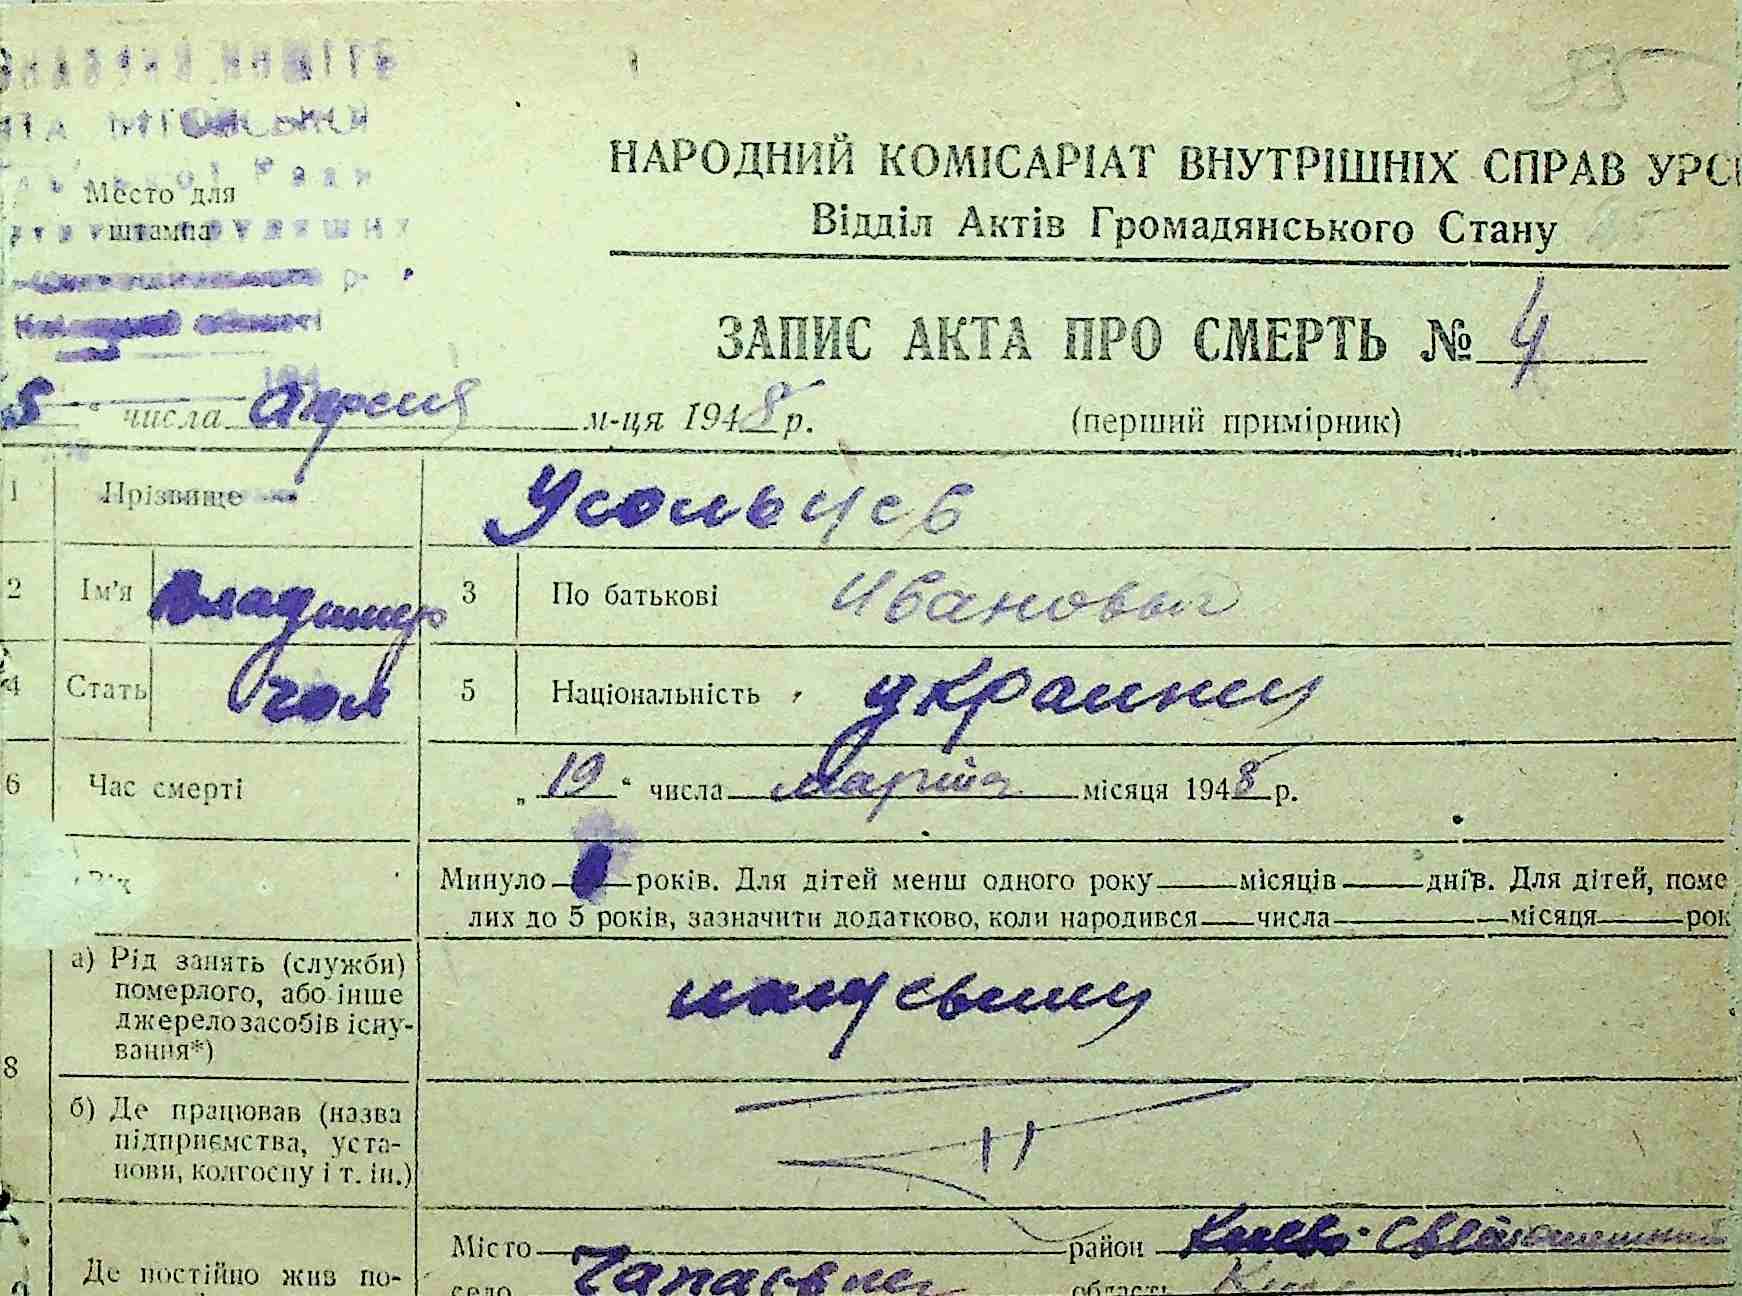 35
НАРОДНИЙ КОМІСАРІАТ ВНУТРІШНІХ СПРАВ УРС
Відділ Актів Громадянського Стану
Место для
штампа
ЗАПИС АКТА ПРО СМЕРТЬ № 4
5 " числа Апреля м-ця 1948 р. (перший примірник)
1 Прізвище Усольцев
2 Ім'я Владимир 3 По батькові Иванович
4 Стать чол 5 Національність украинец
6 Час смерті „ 19 " числа марта місяця 1948 р.
Вік Минуло років. Для дітей менш одного року місяців днів. Для дітей, поме
лих до 5 років, зазначити додатково, коли народився числа місяця рок
8 а) Рід занять (служби)
померлого, або інше
джерело засобів існу-
вання*)
б) Де працював (назва
підприємства, уста-
нови, колгоспу і т. ін.)
Місто район Киево-Святошинский
9 Де постійно жив по- село область